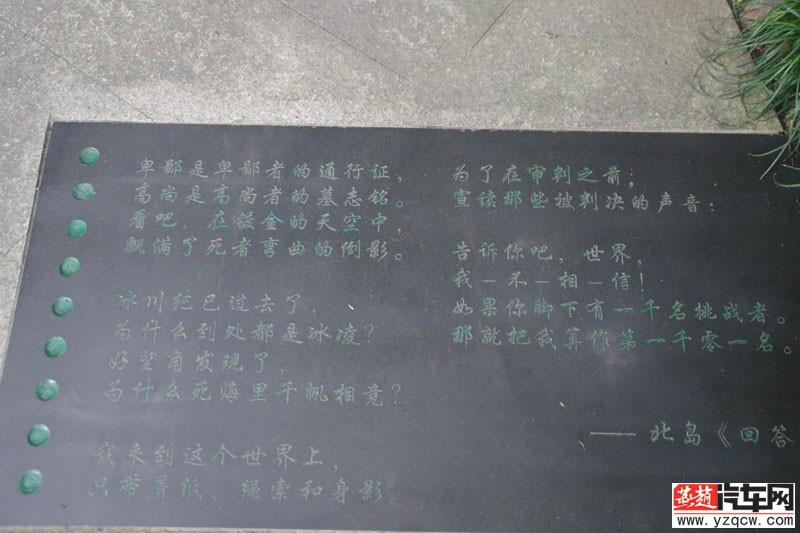 卑鄙是卑鄙者的通行证,
高尚是高尚者的墓志铭。
看吧, 在镀金的天空中,
飘满了死者弯曲的倒影。
冰川纪已过去了,
为什么到处都是冰凌?
好望角发现了,
为什么死海里千帆相竞?
我来到这个世界上,
只带着纸、绳索和身影
为了在审判之前;
宣读那些被判决的声音:
告诉你吧, 世界,
我—不—相—信!
如果你脚下有一千名挑战者。
那就把我算作第一千零一名。
——北岛《回答
燕赵汽车网
www.yzqcw.com